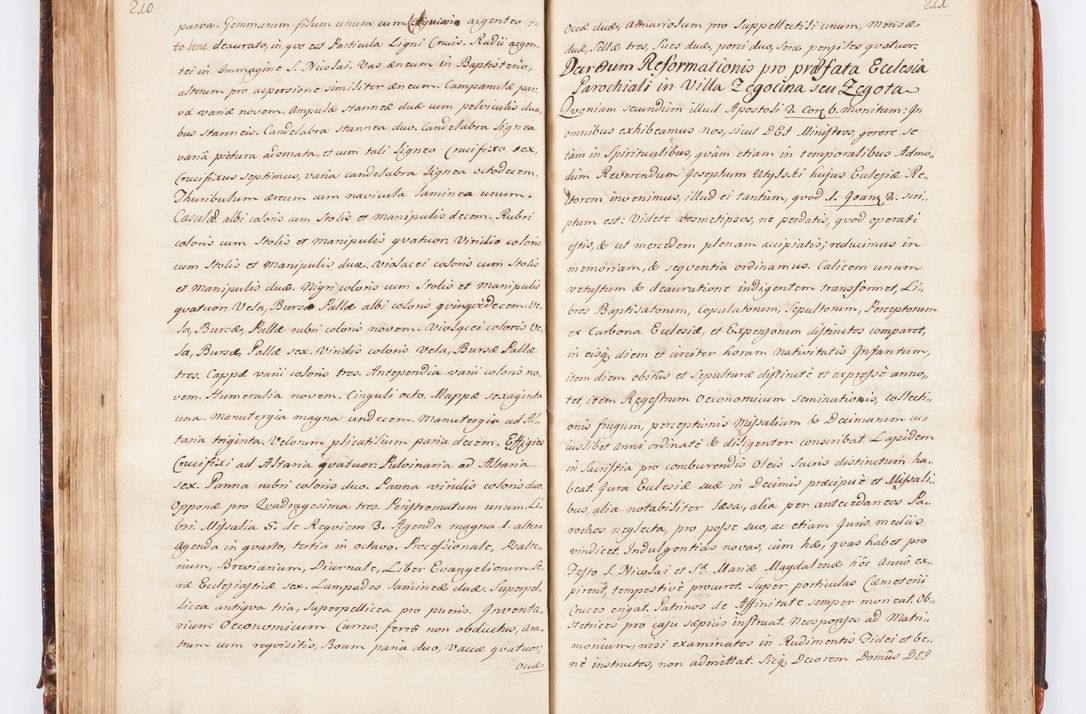 210
parva. Gemmarum filum unum cum argenteo
to bene deaurato, in quo est Particula Ligni Crucis. Radii argen„
tei in Immagine S. Nicolai. Vas æneum in Baptisterio,
alterum pro aspersione similiter æneum. Campanulæ par„
væ variæ novem. Ampulæ Stanneæ duæ cum pelviculis dua„
bus Stanneis. Candelabra Stannea duo. Candelabra Lignea
varia pictura adornata, et cum tali Ligneo Crucifixo sex,
Crucifixus septimus, varia candelabra Lignea octodecem.
Thuribulum æreum cum navicula laminea unum.
Casulæ albi coloris cum Stolis et manipulis decem. Rubri
coloris cum Stolis et manipulis quatuor. Viridis coloris
cum Stolis et Manipulis duæ. Violacei coloris cum Stolis
et Manipulis duæ. Nigri coloris cum Stolis et Manipulis
quatuor. Vela, Bursæ Pallæ albi coloris quinquedecem. Ve„
la, Bursæ, Pallæ rubri coloris novem. Violacei coloris Ve„
la, Bursæ, Pallæ sex. Viridis coloris Vela, Bursæ Pallæ
tres. Cappæ varii coloris tres. Antependia varii coloris no„
vem. Humeralia novem. Cinguli octo. Mappæ sexaginta
una. Manutergia magna undecem. Manutergia ad Al„
taria triginta. Velorum plicatilium paria decem. Effigies
Crucifixi ad Altaria quatuor. Pulvinaria ad Altaria
sex. Panna rubri coloris duo. Panna viridis coloris duo
Opponæ pro Quadragesima tres. Peristromatum unum. Li„
bri Missalia 5. de Requiem 3. Agenda magna 1. altera
Agenda in quarto, tertia in octavo. Processionale, Psalte„
rium, Breviarium, Diurnale, Liber Evangeliorum. Se„
ræ Ecclesiasticæ sex. Lampades lamineæ duæ. Superpel„
licea antiqua tria, Superpellicea pro pueris. Inventa„
rium Oeconomicum. Currus, ferro non obductus, ara„
trum cum requisitis, Boum paria duo, Vaccæ quatuor,
211
Ovæ duæ, Armariolum pro Suppellectili unum, Mensæ
duæ, Sellæ tres, Sues duæ, porci duo, Seræ pensiles quatuor.
Decretum Reformationis pro præfata Ecclesia
Parochiali in Villa Zegocina seu Zegota
Quoniam secundum illud Apostoli 2. Cor. 6. monitum: In
omnibus exhibeamus nos, sicut DEI Ministros, gerere se
tam in Spiritualibus, quàm etiam in temporalibus Admo„
dum Reverendum Josephum hujus Ecclesiæ Re„
ctorem invenimus, illud ei tantùm, quod 1. Joan. 2. scri„
ptum est: Videte vosmetipsos, ne perdatis, quod operati
estis, & ut mercedem plenam accipiatis; reducimus in
memoriam, & sequentia ordinamus. Calicem unum
vetustum & deauratione indigentem transformet, Li„
bros Baptisatorum, Copulatorum, Sepultorum, Perceptorum
ex Carbona Ecclesiæ, et Expensorum distinctos comparet,
in eisq. diem et circiter horam nativitatis Infantum,
item diem obitus et Sepulturæ distinctè et expressè anno„
tet, item Regestrum Oeconomicum Seminationis, collecti„
onis frugum, perceptionis Missalium & Decimarum cu„
iuslibet anni ordinatè & diligenter conscribat. Lapidem
in Sacristia pro comburendis Oleis Sacris distinctum ha„
beat. Jura Ecclesiæ suæ in Decimis præcipuè et Missali„
bus, alia notabiliter læsa, alia per antecedaneos Pa„
rochos neglecta, pro posse suo, ac etiam Juris mediis
vindicet. Indulgentias novas, cùm hæ, quas habet pro
Festo S. Nicolai et Stæ Mariæ Magdalenæ hôc Annô ex„
pirent, tempestivè procuret. Super particulas Cæmeterii
Cruces erigat. Patrinos de Affinitate semper moneat. Ob„
stetrices pro casu sæpius instruat. Neosponsos ad Matri„
monium, nisi examinatos in Rudimentis Fidei et be„
nè instructos, non admittat. Sicq. Decorem Domûs DEI